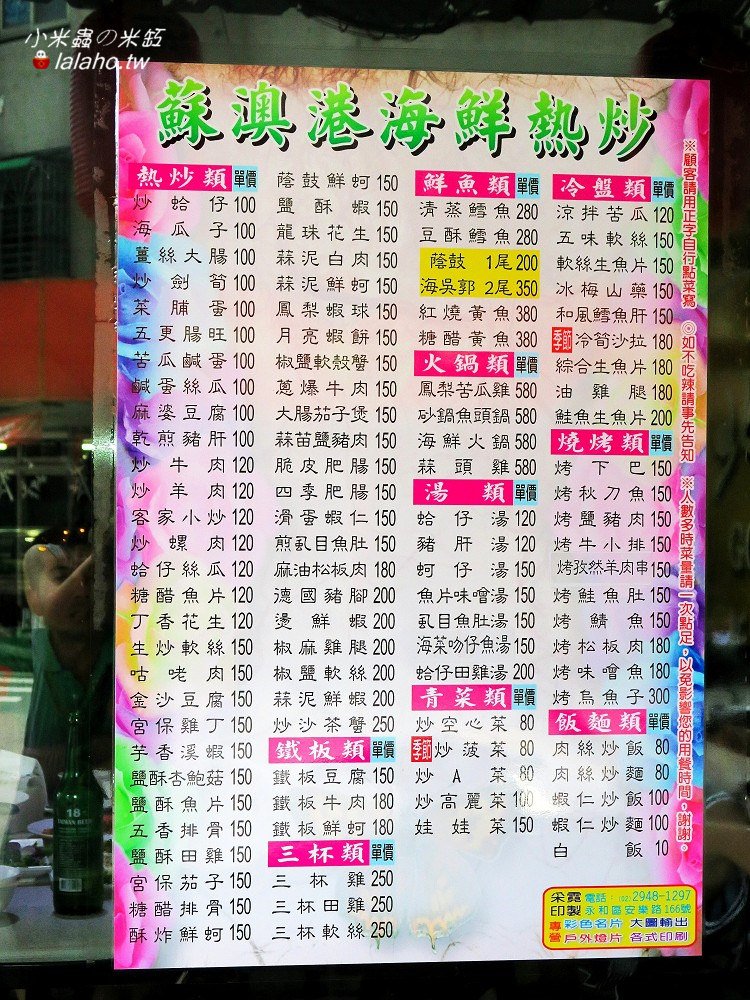 小米蟲の米缸
lalaho.tw
蘇澳港海鮮熱炒
熱炒類 單價
炒蛤仔 100
海瓜子 100
薑絲大腸 100
炒劍筍 100
菜脯蛋 100
五更腸旺 100
苦瓜鹹蛋 100
鹹蛋絲瓜 100
麻婆豆腐 100
乾煎豬肝 100
炒牛肉 120
炒羊肉 120
客家小炒 120
炒螺肉 120
蛤仔絲瓜 120
糖醋魚片 120
丁香花生 120
生炒軟絲 150
咕咾肉 150
金沙豆腐 150
宮保雞丁 150
芋香溪蝦 150
鹽酥杏鮑菇 150
鹽酥魚片 150
五香排骨 150
鹽酥田雞 150
宮保茄子 150
糖醋排骨 150
酥炸鮮蚵 150
蔭鼓鮮蚵 150
鹽酥蝦 150
龍珠花生 150
蒜泥白肉 150
蒜泥鮮蚵 150
鳳梨蝦球 150
月亮蝦餅 150
椒鹽軟殼蟹 150
蔥爆牛肉 150
大腸茄子煲 150
蒜苗鹽豬肉 150
脆皮肥腸 150
四季肥腸 150
滑蛋蝦仁 150
煎虱目魚肚 150
麻油松板肉 180
德國豬腳 200
燙鮮蝦 200
椒麻雞腿 200
椒鹽軟絲 200
蒜泥鮮蝦 200
炒沙茶蟹 250
鐵板類 單價
鐵板豆腐 150
鐵板牛肉 180
鐵板鮮蚵 180
三杯類 單價
三杯雞 250
三杯田雞 250
三杯軟絲 250
鮮魚類 單價
清蒸鱈魚 280
豆酥鱈魚 280
蔭鼓 1尾 200
海吳郭 2尾 350
紅燒黃魚 380
糖醋黃魚 380
火鍋類 單價
鳳梨苦瓜雞 580
砂鍋魚頭鍋 580
海鮮火鍋 580
蒜頭雞 580
湯類 單價
蛤仔湯 120
豬肝湯 120
蚵仔湯 150
魚片味噌湯 150
虱目魚肚湯 150
海菜吻仔魚湯 150
蛤仔田雞湯 200
青菜類 單價
炒空心菜 80
季節 炒菠菜 80
炒A菜 80
炒高麗菜 100
娃娃菜 150
冷盤類 單價
涼拌苦瓜 120
五味軟絲 150
軟絲生魚片 150
冰梅山藥 150
和風鱈魚肝 150
季節 冷筍沙拉 180
綜合生魚片 180
油雞腿 180
鮭魚生魚片 200
燒烤類 單價
烤下巴 150
烤秋刀魚 150
烤鹽豬肉 150
烤牛小排 150
烤孜然羊肉串 150
烤鮭魚肚 150
烤鯖魚 150
烤松板肉 180
烤味噌魚 180
烤烏魚子 300
飯麵類 單價
肉絲炒飯 80
肉絲炒麵 80
蝦仁炒飯 100
蝦仁炒麵 100
白飯 10
※顧客請用正字自行點菜寫 ◎如不吃辣請事先告知 ※人數多時菜量請一次點足，以免影響您的用餐時間，謝謝。
采霓印製 電話：(02)2948-1297
永和區安樂路166號
專營 彩色名片 大圖輸出
戶外燈片 各式印刷
18